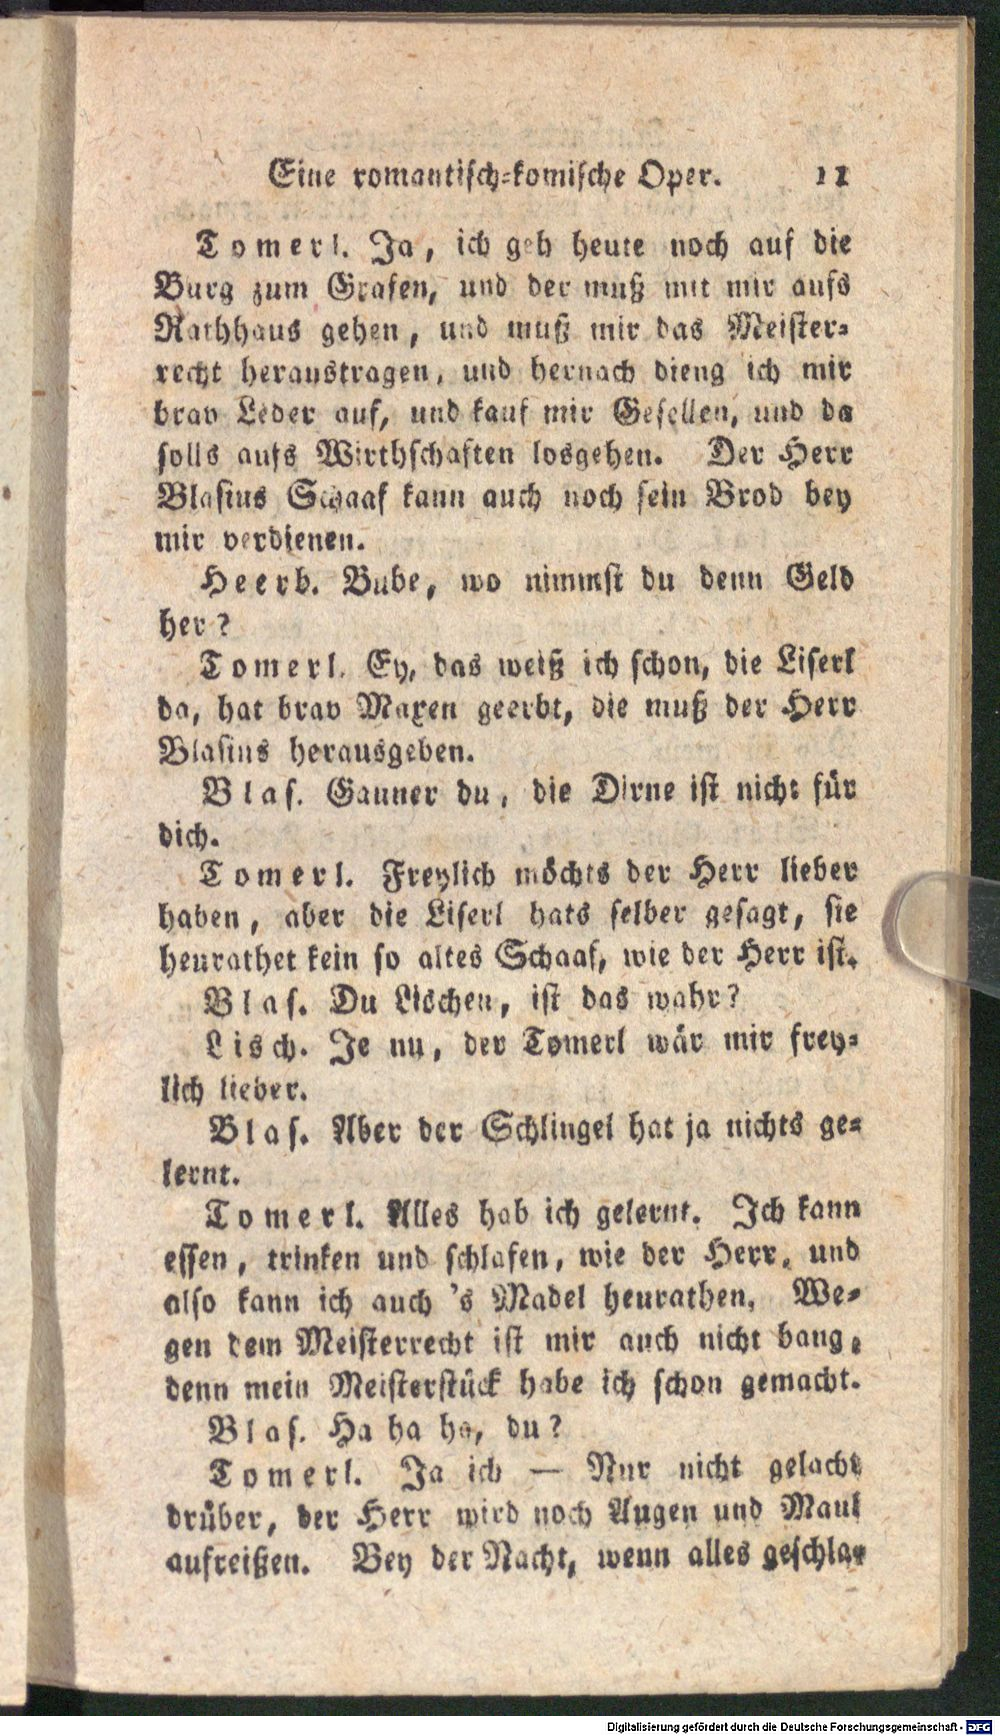 Eine romantisch-komische Oper. 11
Tomerl. Ja, ich geh heute noch auf die
Burg zum Grafen, und der muß mit mir aufs
Rathhaus gehen, und muß mir das Meister-
recht heraustragen, und hernach dieng ich mir
brav Leder auf, und kauf mir Gesellen, und da
solls aufs Wirthschaften losgehen. Der Herr
Blasius Schaaf kann auch noch sein Brod bey
mir verdienen.
Heerb. Bube, wo nimmst du denn Geld
her?
Tomerl. Ey, das weiß ich schon, die Liserl
da, hat brav Maxen geerbt, die muß der Herr
Blasius herausgeben.
Blas. Gauner du, die Dirne ist nicht für
dich.
Tomerl. Freylich möchts der Herr lieber
haben, aber die Liserl hats selber gesagt, sie
heurathet kein so altes Schaaf, wie der Herr ist.
Blas. Du Lischen, ist das wahr?
Lisch. Je nu, der Tomerl wär mir frey-
lich lieber.
Blas. Aber der Schlingel hat ja nichts ge-
lernt.
Tomerl. Alles hab ich gelernt. Ich kann
essen, trinken und schlafen, wie der Herr, und
also kann ich auch 's Madel heurathen. We-
gen dem Meisterrecht ist mir auch nicht bang,
denn mein Meisterstück habe ich schon gemacht.
Blas. Ha ha ha, du?
Tomerl. Ja ich — Nur nicht gelacht
drüber, der Herr wird noch Augen und Maul
aufreißen. Bey der Nacht, wenn alles geschla-
Digitalisierung gefördert durch die Deutsche Forschungsgemeinschaft - DFG